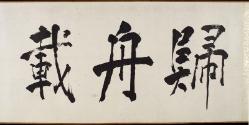 歸舟載